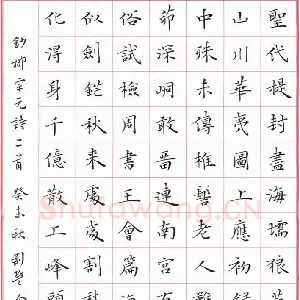 聖代提封盡海壖狼
山川華夷圖上應初
中殊未傳椎髻老人
茆深峒敢留連南宮
俗試檢周書王會篇
似劍鋩秋來處處割
化得身千億散上峰頭
鈔柳宗元詩二首 癸未秋
Shufawang.CN